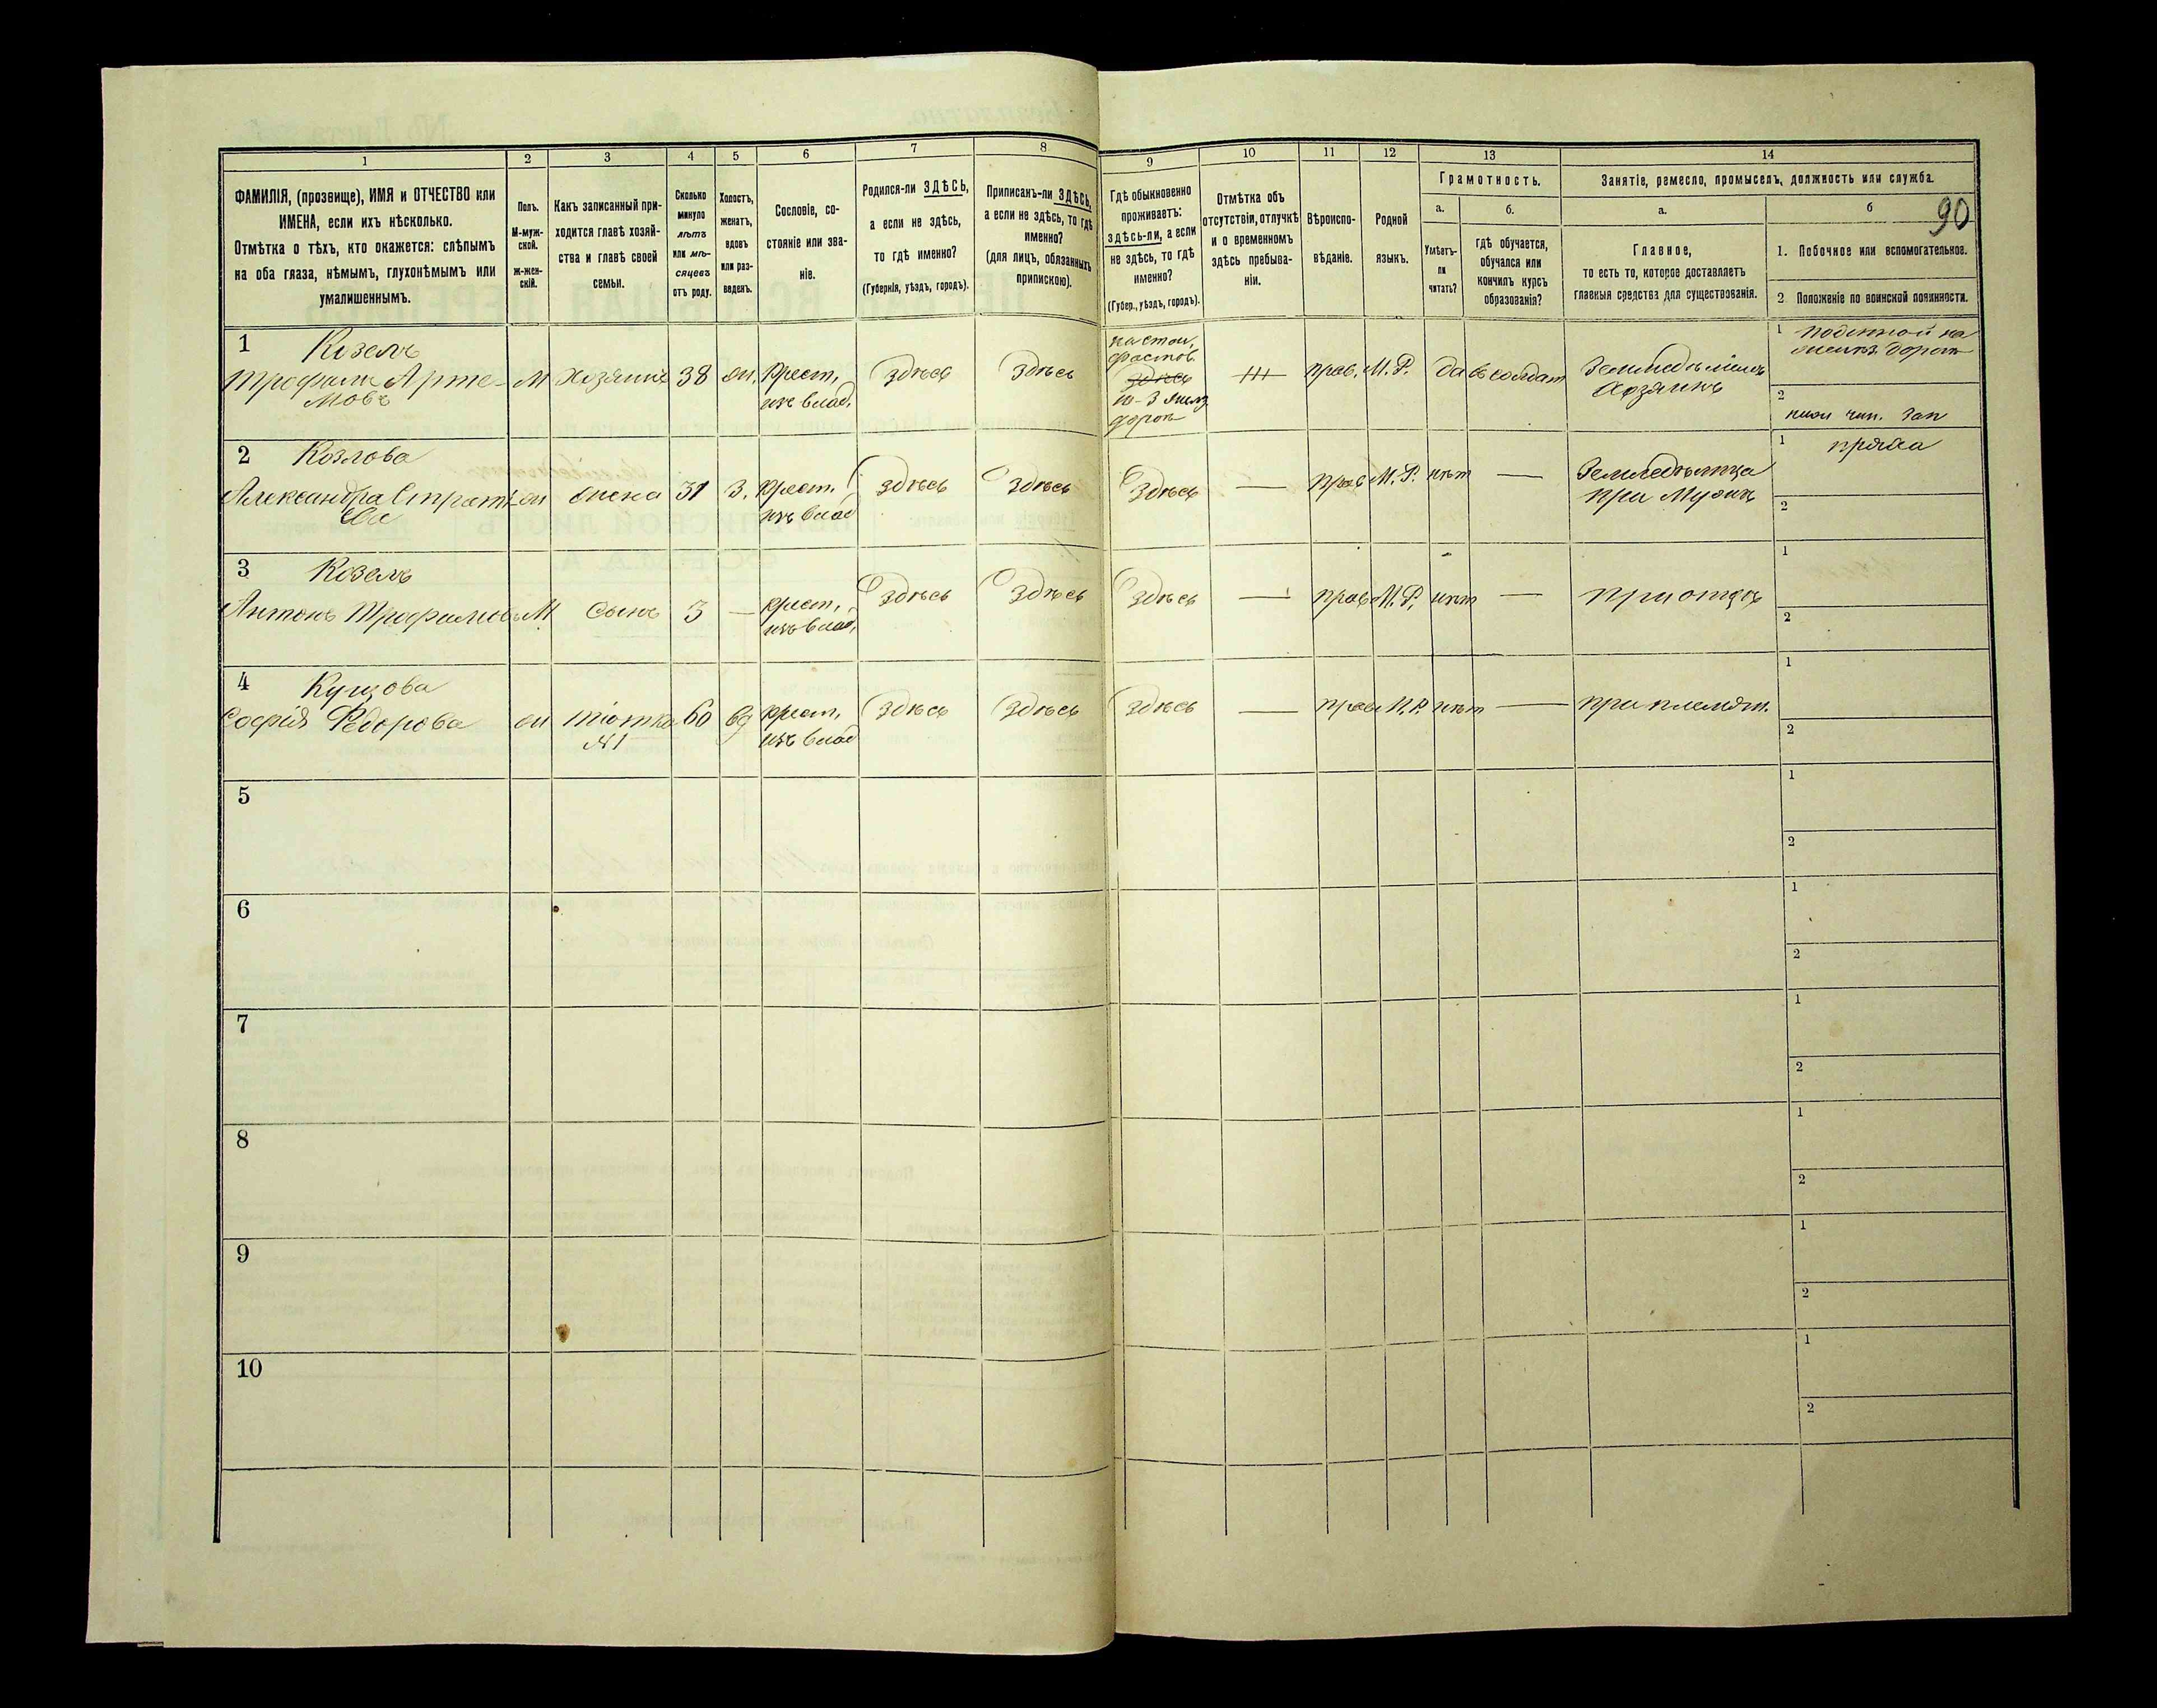 1 2 3 4 5 6 7 8 9 10 11 12 13 14
ФАМИЛІЯ, (прозвище), ИМЯ и ОТЧЕСТВО или
ИМЕНА, если ихъ нѣсколько.
Отмѣтка о тѣхъ, кто окажется: слѣпымъ
на оба глаза, нѣмымъ, глухонѣмымъ или
умалишеннымъ.
Полъ.
М-муж-
ской.
Ж-жен-
скій.
Какъ записанный при-
ходится главѣ хозяй-
ства и главѣ своей
семьи.
Сколько
минуло
лѣтъ
или мѣ-
сяцевъ
отъ роду.
Холостъ,
женатъ,
вдовъ
или раз-
веденъ.
Сословіе, со-
стояніе или зва-
ніе.
Родился-ли ЗДѢСЬ,
а если не здѣсь,
то гдѣ именно?
(Губернія, уѣздъ, городъ).
Приписанъ-ли ЗДѢСЬ,
а если не здѣсь, то гдѣ
именно?
(для лицъ, обязанныхъ
припискою).
Гдѣ обыкновенно
проживаетъ:
здѣсь-ли, а если
не здѣсь, то гдѣ
именно?
(Губер., уѣздъ, городъ).
Отмѣтка объ
отсутствіи, отлучкѣ
и о временномъ
здѣсь пребыва-
ніи.
Вѣроиспо-
вѣданіе.
Родной
языкъ.
Грамотность.
а.
Умѣетъ-
ли
читать?
б.
гдѣ обучается,
обучался или
кончилъ курсъ
образованія?
Занятіе, ремесло, промыселъ, должность или служба.
а.
Главное,
то есть то, которое доставляетъ
главныя средства для существованія.
б
90
1. Побочное или вспомогательное.
2. Положеніе по воинской повинности.
1 Козелъ
Трофимъ Арте-
мовъ
М Хозяинъ 38 жн. Крест.
изъ влад.
Здѣсь Здѣсь
на стан.
Фастов.
здѣсь
дорог
прав. М.Р. да в солдат
Земледѣлецъ
Хозяинъ
1 поденной на
желѣз. дорог
2
нижн чин. Зап
2 Козлова
Александра
ж жена 31 З. Крест.
изъ влад
Здѣсь Здѣсь Здѣсь — прав М.Р. нѣт —
Земледѣлица
при Мужѣ
1 пряха
2
3 Козелъ
Антонъ Трофимовъ М Сынъ 3 — крест.
изъ влад.
Здѣсь Здѣсь Здѣсь — прав М.Р. нѣт — При отцѣ
1
2
4
Софія Федорова ж тіотка
№1
60 вд крест.
изъ влад
Здѣсь Здѣсь Здѣсь — прав М.Р. нѣт — при племян.
1
2
5
1
2
6
1
2
7
1
2
8
1
2
9
1
2
10
1
2